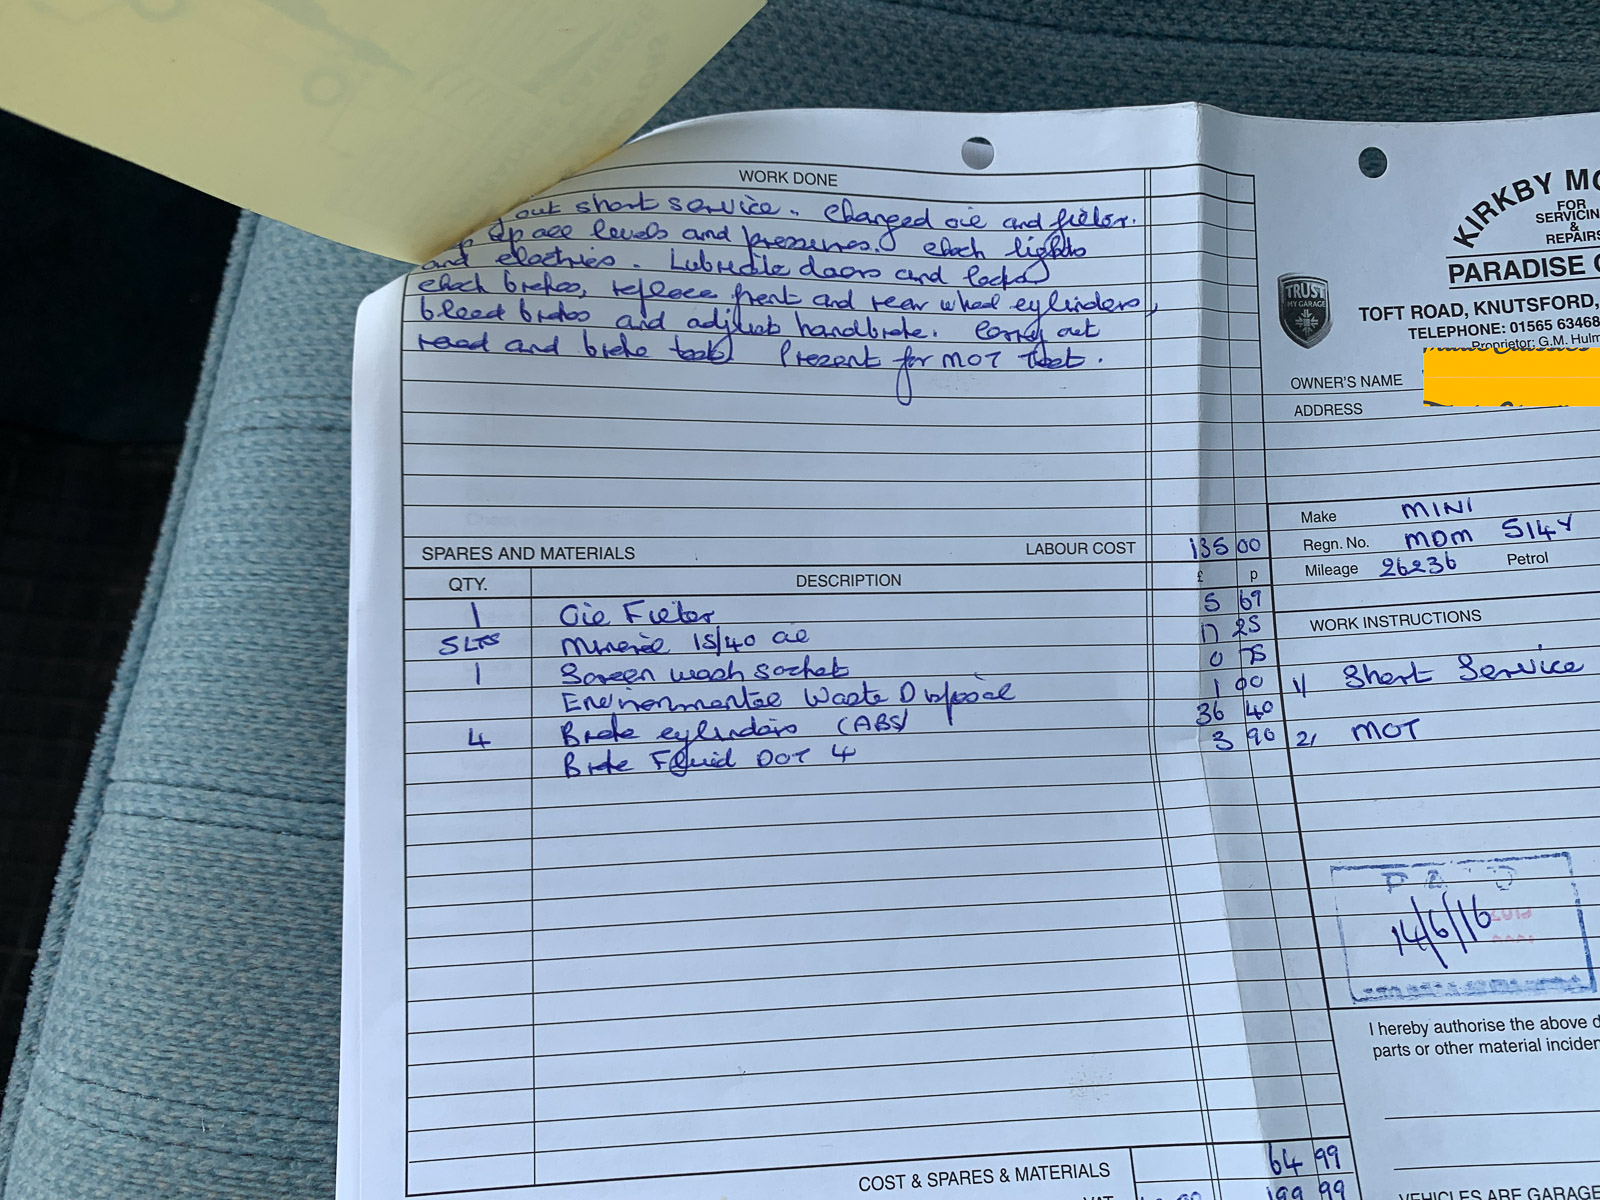 WORK DONE
out short service. Changed oil and filter.
up all levels and pressures. check lights
and electrics. Lubricate doors and locks
check brakes, replace front and rear wheel cylinders,
bleed brakes and adjust handbrake. Carry out
road and brake test. Present for MOT test.
SPARES AND MATERIALS LABOUR COST 135 00
QTY. DESCRIPTION £ p
1 Oil Filter 5 69
5 LTS Mineral 15/40 oil 17 25
1 Screen wash sachet 0 75
Environmental Waste Disposal 1 00
4 Brake cylinders (ABS) 36 40
Brake Fluid DOT 4 3 90
COST & SPARES & MATERIALS 64 99
VAT 199 99
KIRKBY MO
FOR
SERVICIN
&
REPAIRS
PARADISE
TRUST
MY GARAGE
TOFT ROAD, KNUTSFORD,
TELEPHONE: 01565 63468
Proprietor: G.M. Hulm
OWNER'S NAME
ADDRESS
Make MINI
Regn. No. MDM 514Y
Mileage 26236 Petrol
WORK INSTRUCTIONS
1/ Short Service
2/ MOT
PAID
14/6/16
I hereby authorise the above d
parts or other material inciden
VEHICLES ARE GARAGE